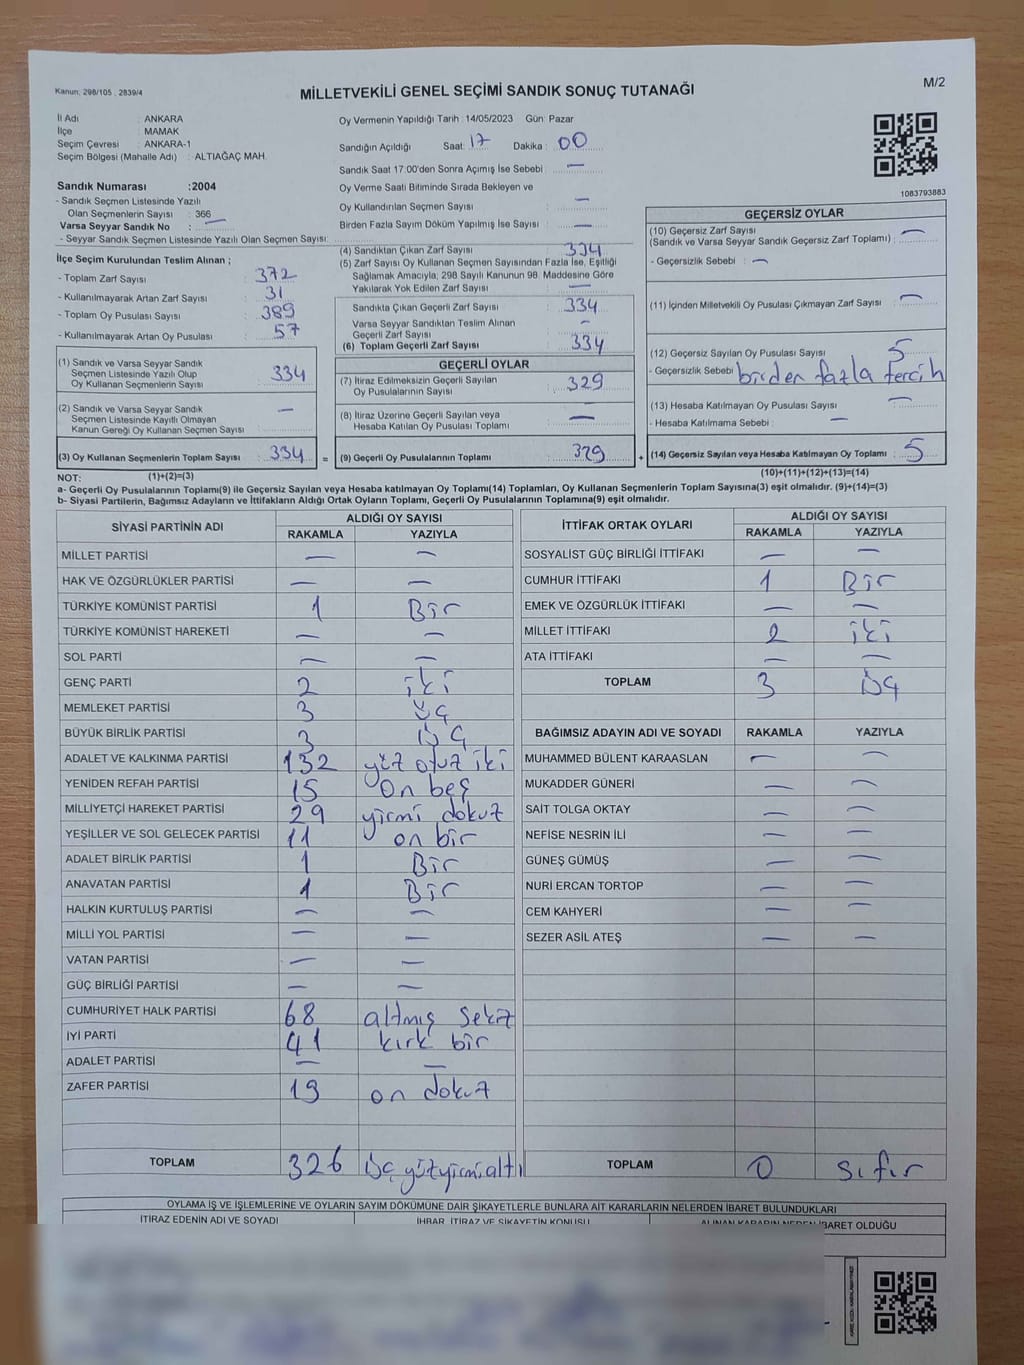 Kanun: 298/105 , 2839/4
MİLLETVEKİLİ GENEL SEÇİMİ SANDIK SONUÇ TUTANAĞI
M/2
İl Adı : ANKARA
İlçe : MAMAK
Seçim Çevresi : ANKARA-1
Seçim Bölgesi (Mahalle Adı) : ALTIAĞAÇ MAH.
Oy Vermenin Yapıldığı Tarih : 14/05/2023 Gün: Pazar
Sandığın Açıldığı Saat: 17 Dakika : 00
Sandık Saat 17:00'den Sonra Açımış İse Sebebi : —
Oy Verme Saati Bitiminde Sırada Bekleyen ve
Oy Kullandırılan Seçmen Sayısı : —
Birden Fazla Sayım Döküm Yapılmış İse Sayısı : —
1083793883
Sandık Numarası :2004
- Sandık Seçmen Listesinde Yazılı
Olan Seçmenlerin Sayısı : 366
Varsa Seyyar Sandık No : —
- Seyyar Sandık Seçmen Listesinde Yazılı Olan Seçmen Sayısı:
İlçe Seçim Kurulundan Teslim Alınan ;
- Toplam Zarf Sayısı : 372
- Kullanılmayarak Artan Zarf Sayısı : 31
- Toplam Oy Pusulası Sayısı : 389
- Kullanılmayarak Artan Oy Pusulası : 57
(1) Sandık ve Varsa Seyyar Sandık
Seçmen Listesinde Yazılı Olup
Oy Kullanan Seçmenlerin Sayısı : 334
(2) Sandık ve Varsa Seyyar Sandık
Seçmen Listesinde Kayıtlı Olmayan
Kanun Gereği Oy Kullanan Seçmen Sayısı : —
(3) Oy Kullanan Seçmenlerin Toplam Sayısı : 334 =
(4) Sandıktan Çıkan Zarf Sayısı : 334
(5) Zarf Sayısı Oy Kullanan Seçmen Sayısından Fazla İse, Eşitliği
Sağlamak Amacıyla, 298 Sayılı Kanunun 98. Maddesine Göre
Yakılarak Yok Edilen Zarf Sayısı : —
Sandıkta Çıkan Geçerli Zarf Sayısı : 334
Varsa Seyyar Sandıktan Teslim Alınan
Geçerli Zarf Sayısı : —
(6) Toplam Geçerli Zarf Sayısı : 334
GEÇERLİ OYLAR
(7) İtiraz Edilmeksizin Geçerli Sayılan
Oy Pusulalarının Sayısı : 329
(8) İtiraz Üzerine Geçerli Sayılan veya
Hesaba Katılan Oy Pusulası Toplamı : —
(9) Geçerli Oy Pusulalarının Toplamı : 329 +
GEÇERSİZ OYLAR
(10) Geçersiz Zarf Sayısı : —
(Sandık ve Varsa Seyyar Sandık Geçersiz Zarf Toplamı)
- Geçersizlik Sebebi : —
(11) İçinden Milletvekili Oy Pusulası Çıkmayan Zarf Sayısı : —
(12) Geçersiz Sayılan Oy Pusulası Sayısı : 5
- Geçersizlik Sebebi : birden fazla tercih
(13) Hesaba Katılmayan Oy Pusulası Sayısı : —
- Hesaba Katılmama Sebebi : —
(14) Geçersiz Sayılan veya Hesaba Katılmayan Oy Toplamı : 5
NOT: (1)+(2)=(3)
(10)+(11)+(12)+(13)=(14)
a- Geçerli Oy Pusulalarının Toplamı(9) ile Geçersiz Sayılan veya Hesaba katılmayan Oy Toplamı(14) Toplamları, Oy Kullanan Seçmenlerin Toplam Sayısına(3) eşit olmalıdır. (9)+(14)=(3)
b- Siyasi Partilerin, Bağımsız Adayların ve İttifakların Aldığı Ortak Oyların Toplamı, Geçerli Oy Pusulalarının Toplamına(9) eşit olmalıdır.
SİYASİ PARTİNİN ADI ALDIĞI OY SAYISI
RAKAMLA YAZIYLA
MİLLET PARTİSİ — —
HAK VE ÖZGÜRLÜKLER PARTİSİ — —
TÜRKİYE KOMÜNİST PARTİSİ 1 Bir
TÜRKİYE KOMÜNİST HAREKETİ — —
SOL PARTİ — —
GENÇ PARTİ 2 iki
MEMLEKET PARTİSİ 3 Üç
BÜYÜK BİRLİK PARTİSİ 3 Üç
ADALET VE KALKINMA PARTİSİ 132 yüz otuz iki
YENİDEN REFAH PARTİSİ 15 On beş
MİLLİYETÇİ HAREKET PARTİSİ 29 yirmi dokuz
YEŞİLLER VE SOL GELECEK PARTİSİ 11 on bir
ADALET BİRLİK PARTİSİ 1 Bir
ANAVATAN PARTİSİ 1 Bir
HALKIN KURTULUŞ PARTİSİ — —
MİLLİ YOL PARTİSİ — —
VATAN PARTİSİ — —
GÜÇ BİRLİĞİ PARTİSİ — —
CUMHURİYET HALK PARTİSİ 68 altmış sekiz
İYİ PARTİ 41 kırk bir
ADALET PARTİSİ — —
ZAFER PARTİSİ 19 on dokuz
TOPLAM 326 Üç yüz yirmi altı
İTTİFAK ORTAK OYLARI ALDIĞI OY SAYISI
RAKAMLA YAZIYLA
SOSYALİST GÜÇ BİRLİĞİ İTTİFAKI — —
CUMHUR İTTİFAKI 1 Bir
EMEK VE ÖZGÜRLÜK İTTİFAKI — —
MİLLET İTTİFAKI 2 iki
ATA İTTİFAKI — —
TOPLAM 3 Üç
BAĞIMSIZ ADAYIN ADI VE SOYADI RAKAMLA YAZIYLA
MUHAMMED BÜLENT KARAASLAN — —
MUKADDER GÜNERİ — —
SAİT TOLGA OKTAY — —
NEFİSE NESRİN İLİ — —
GÜNEŞ GÜMÜŞ — —
NURİ ERCAN TORTOP — —
CEM KAHYERİ — —
SEZER ASİL ATEŞ — —
TOPLAM 0 sıfır
OYLAMA İŞ VE İŞLEMLERİNE VE OYLARIN SAYIM DÖKÜMÜNE DAİR ŞİKAYETLERLE BUNLARA AİT KARARLARIN NELERDEN İBARET BULUNDUKLARI
İTİRAZ EDENİN ADI VE SOYADI İHBAR, İTİRAZ VE ŞİKAYETİN KONUSU ALINAN KARARIN NEDEN İBARET OLDUĞU